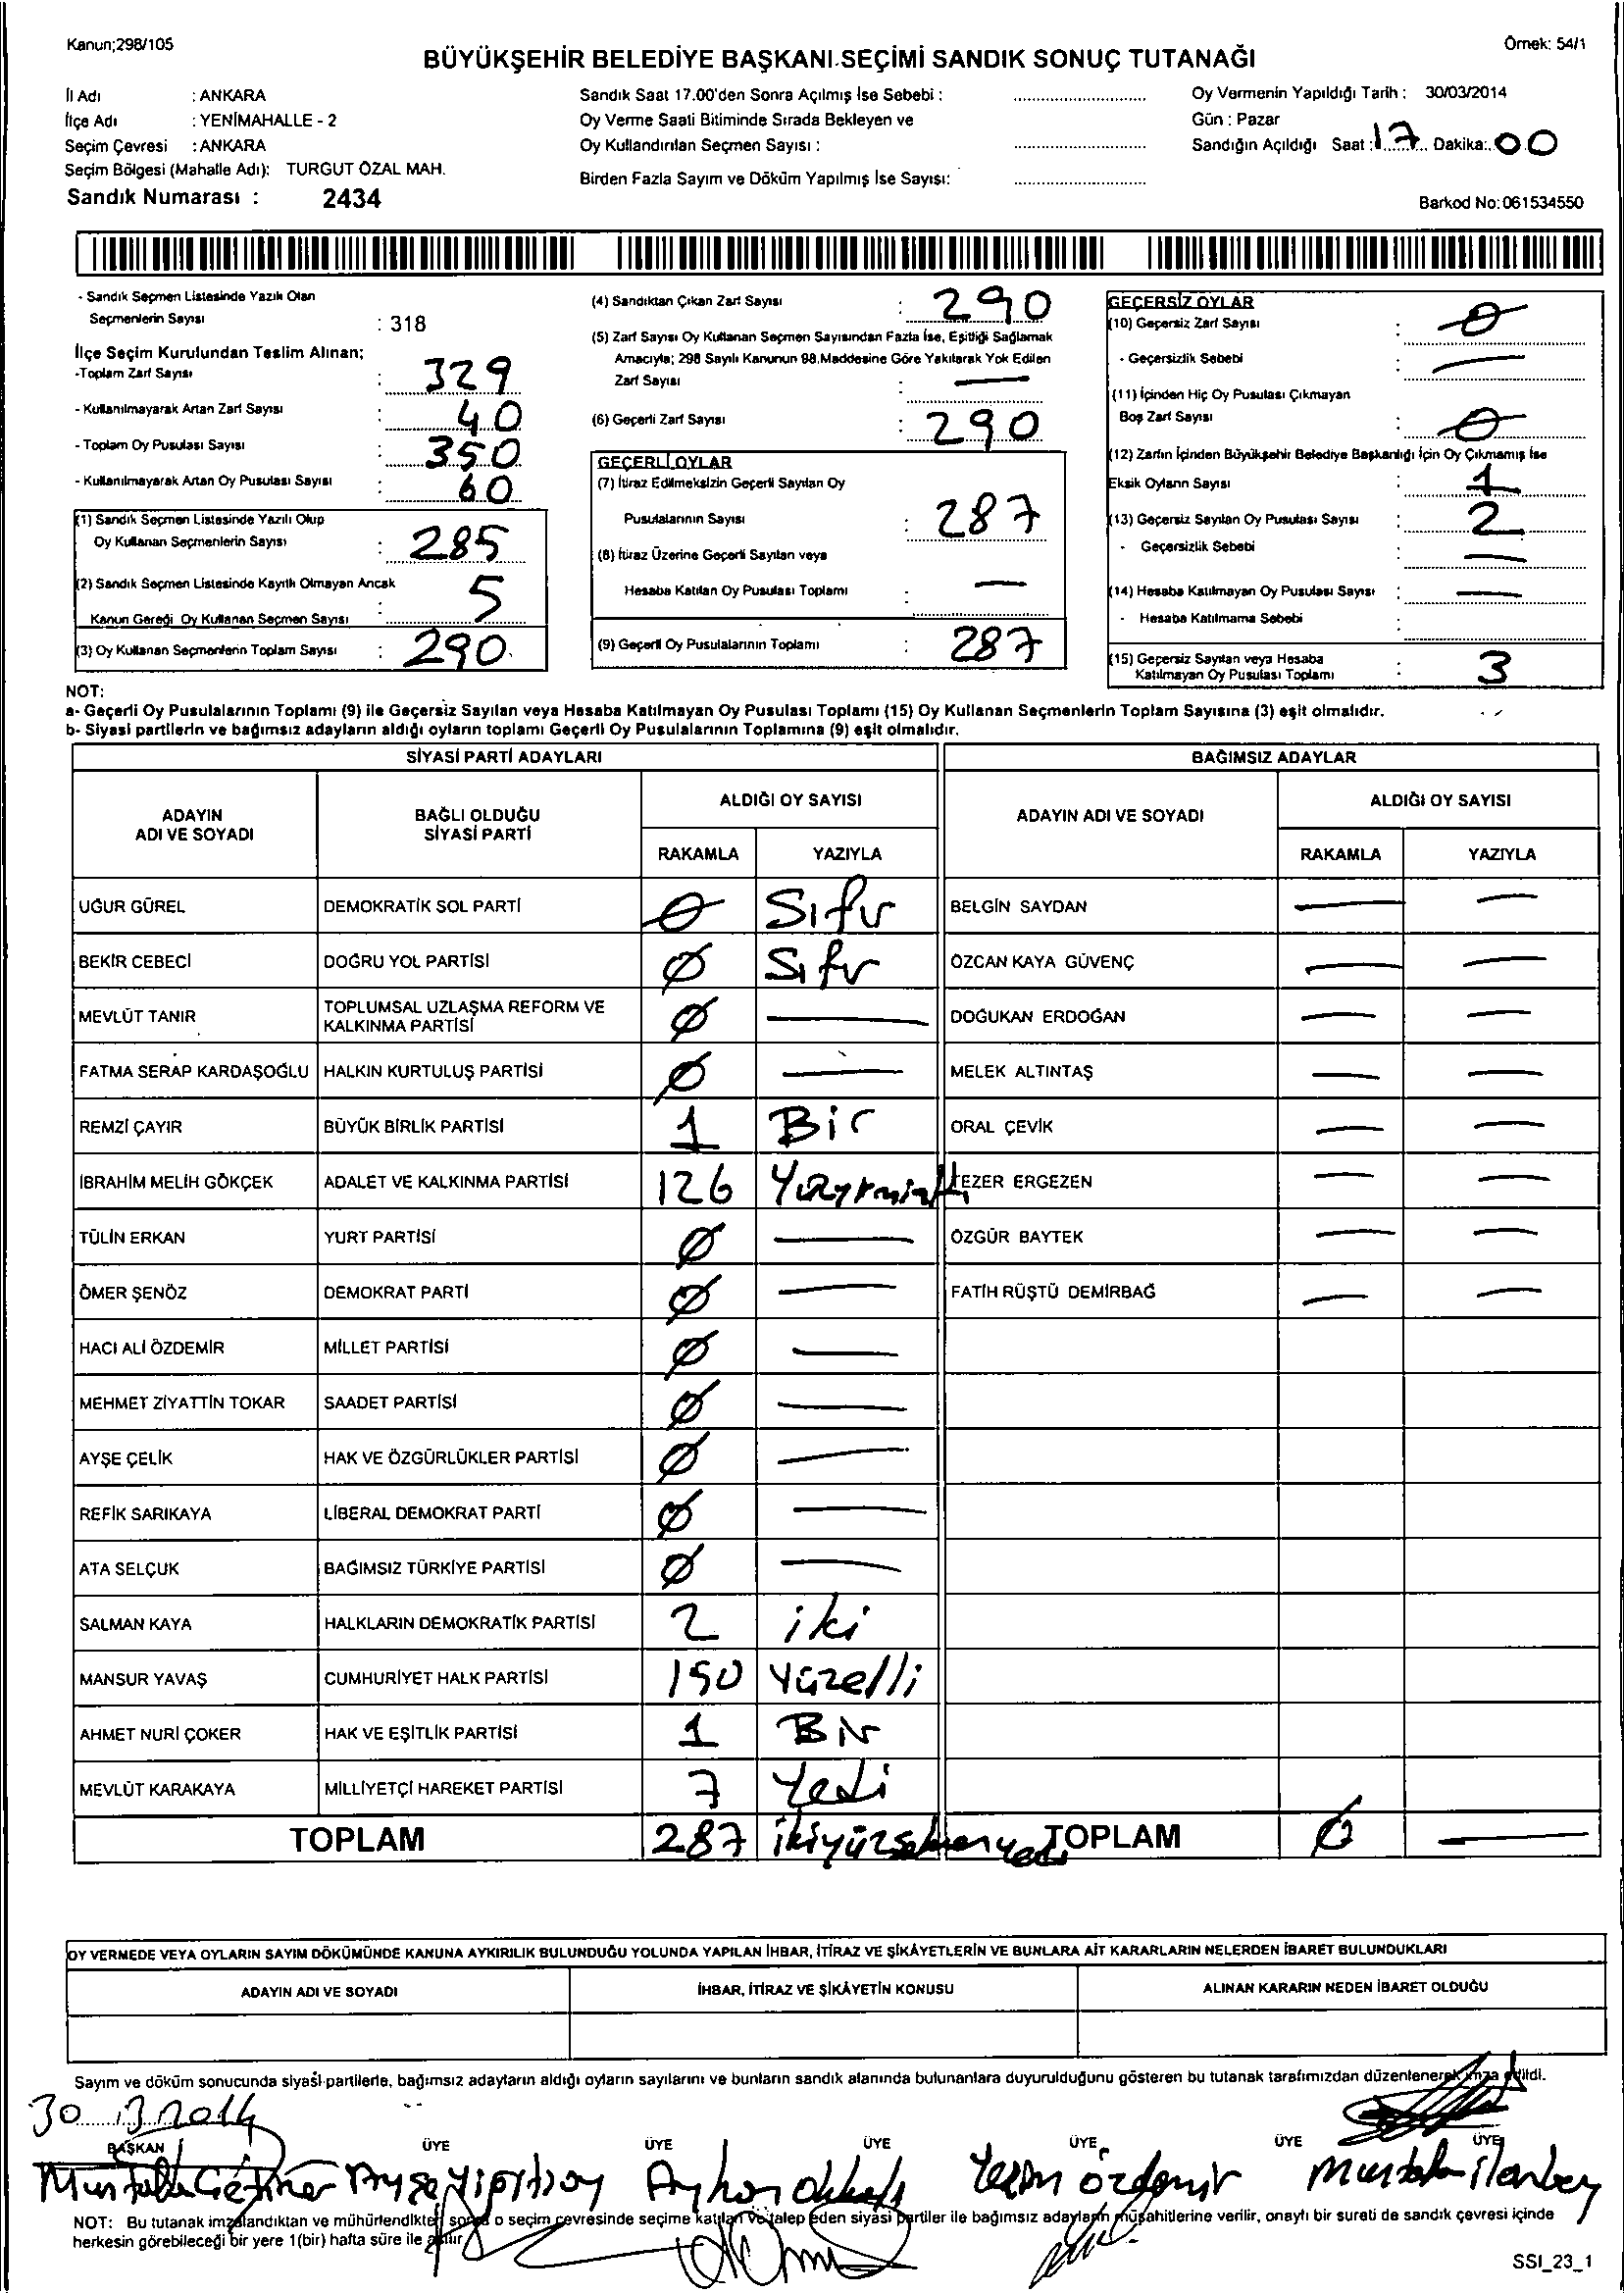 Kanun;298/105
Örnek: 54/1
BÜYÜKŞEHİR BELEDİYE BAŞKANI SEÇİMİ SANDIK SONUÇ TUTANAĞI
İl Adı : ANKARA
İlçe Adı : YENİMAHALLE - 2
Seçim Çevresi : ANKARA
Seçim Bölgesi (Mahalle Adı): TURGUT ÖZAL MAH.
Sandık Numarası : 2434
Sandık Saat 17.00'den Sonra Açılmış İse Sebebi :
Oy Verme Saati Bitiminde Sırada Bekleyen ve
Oy Kullandırılan Seçmen Sayısı :
Birden Fazla Sayım ve Döküm Yapılmış İse Sayısı:
Oy Vermenin Yapıldığı Tarih : 30/03/2014
Gün : Pazar
Sandığın Açıldığı Saat : 17 Dakika: 00
Barkod No: 061534550
- Sandık Seçmen Listesinde Yazılı Olan
Seçmenlerin Sayısı : 318
İlçe Seçim Kurulundan Teslim Alınan;
-Toplam Zarf Sayısı : 329
- Kullanılmayarak Artan Zarf Sayısı : 40
- Toplam Oy Pusulası Sayısı : 350
- Kullanılmayarak Artan Oy Pusulası Sayısı : 60
(1) Sandık Seçmen Listesinde Yazılı Olup
Oy Kullanan Seçmenlerin Sayısı : 285
(2) Sandık Seçmen Listesinde Kayıtlı Olmayan Ancak
Kanun Gereği Oy Kullanan Seçmen Sayısı : 5
(3) Oy Kullanan Seçmenlerin Toplam Sayısı : 290
(4) Sandıktan Çıkan Zarf Sayısı : 290
(5) Zarf Sayısı Oy Kullanan Seçmen Sayısından Fazla İse, Eşitliği Sağlamak
Amacıyla; 298 Sayılı Kanunun 98.Maddesine Göre Yakılarak Yok Edilen
Zarf Sayısı : —
(6) Geçerli Zarf Sayısı : 290
GEÇERLİ OYLAR
(7) İtiraz Edilmeksizin Geçerli Sayılan Oy
Pusulalarının Sayısı : 287
(8) İtiraz Üzerine Geçerli Sayılan veya
Hesaba Katılan Oy Pusulası Toplamı : —
(9) Geçerli Oy Pusulalarının Toplamı : 287
GEÇERSİZ OYLAR
(10) Geçersiz Zarf Sayısı : 0
- Geçersizlik Sebebi : —
(11) İçinden Hiç Oy Pusulası Çıkmayan
Boş Zarf Sayısı : 0
(12) Zarfın İçinden Büyükşehir Belediye Başkanlığı İçin Oy Çıkmamış İse
Eksik Oyların Sayısı : 1
(13) Geçersiz Sayılan Oy Pusulası Sayısı : 2
- Geçersizlik Sebebi : —
(14) Hesaba Katılmayan Oy Pusulası Sayısı : —
- Hesaba Katılmama Sebebi :
(15) Geçersiz Sayılan veya Hesaba
Katılmayan Oy Pusulası Toplamı : 3
NOT:
a- Geçerli Oy Pusulalarının Toplamı (9) ile Geçersiz Sayılan veya Hesaba Katılmayan Oy Pusulası Toplamı (15) Oy Kullanan Seçmenlerin Toplam Sayısına (3) eşit olmalıdır.
b- Siyasi partilerin ve bağımsız adayların aldığı oyların toplamı Geçerli Oy Pusulalarının Toplamına (9) eşit olmalıdır.
SİYASİ PARTİ ADAYLARI BAĞIMSIZ ADAYLAR
ADAYIN ADI VE SOYADI BAĞLI OLDUĞU SİYASİ PARTİ ALDIĞI OY SAYISI ADAYIN ADI VE SOYADI ALDIĞI OY SAYISI
RAKAMLA YAZIYLA RAKAMLA YAZIYLA
UĞUR GÜREL DEMOKRATİK SOL PARTİ 0 Sıfır BELGİN SAYDAN — —
BEKİR CEBECİ DOĞRU YOL PARTİSİ Ø Sıfır ÖZCAN KAYA GÜVENÇ — —
MEVLÜT TANIR TOPLUMSAL UZLAŞMA REFORM VE KALKINMA PARTİSİ Ø — DOĞUKAN ERDOĞAN — —
FATMA SERAP KARDAŞOĞLU HALKIN KURTULUŞ PARTİSİ Ø — MELEK ALTINTAŞ — —
REMZİ ÇAYIR BÜYÜK BİRLİK PARTİSİ 1 Bir ORAL ÇEVİK — —
İBRAHİM MELİH GÖKÇEK ADALET VE KALKINMA PARTİSİ 126 Yüzyirmialtı TEZER ERGEZEN — —
TÜLİN ERKAN YURT PARTİSİ Ø — ÖZGÜR BAYTEK — —
ÖMER ŞENÖZ DEMOKRAT PARTİ Ø — FATİH RÜŞTÜ DEMİRBAĞ — —
HACI ALİ ÖZDEMİR MİLLET PARTİSİ Ø —
MEHMET ZİYATTİN TOKAR SAADET PARTİSİ Ø —
AYŞE ÇELİK HAK VE ÖZGÜRLÜKLER PARTİSİ Ø —
REFİK SARIKAYA LİBERAL DEMOKRAT PARTİ Ø —
ATA SELÇUK BAĞIMSIZ TÜRKİYE PARTİSİ Ø —
SALMAN KAYA HALKLARIN DEMOKRATİK PARTİSİ 2 iki
MANSUR YAVAŞ CUMHURİYET HALK PARTİSİ 150 Yüzelli
AHMET NURİ ÇOKER HAK VE EŞİTLİK PARTİSİ 1 Bir
MEVLÜT KARAKAYA MİLLİYETÇİ HAREKET PARTİSİ 7 Yedi
TOPLAM 287 ikiyüzseksenyedi TOPLAM Ø —
OY VERMEDE VEYA OYLARIN SAYIM DÖKÜMÜNDE KANUNA AYKIRILIK BULUNDUĞU YOLUNDA YAPILAN İHBAR, İTİRAZ VE ŞİKÂYETLERİN VE BUNLARA AİT KARARLARIN NELERDEN İBARET BULUNDUKLARI
ADAYIN ADI VE SOYADI İHBAR, İTİRAZ VE ŞİKÂYETİN KONUSU ALINAN KARARIN NEDEN İBARET OLDUĞU
Sayım ve döküm sonucunda siyasi partilerle, bağımsız adayların aldığı oyların sayılarını ve bunların sandık alanında bulunanlara duyurulduğunu gösteren bu tutanak tarafımızdan düzenlenerek imza edildi.
30.3.2014
BAŞKAN ÜYE ÜYE ÜYE ÜYE ÜYE ÜYE
Mustafa Ayşe Ayhan Yesim özdemir Mustafa ilanbey
NOT: Bu tutanak imzalandıktan ve mühürlendikten sonra o seçim çevresinde seçime katılan ve talep eden siyasi partiler ile bağımsız adayların müşahitlerine verilir, onaylı bir sureti de sandık çevresi içinde
herkesin görebileceği bir yere 1(bir) hafta süre ile asılır.
SSI_23_1